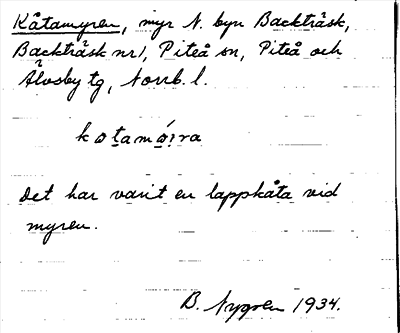 Kåtamyren, myr N. byn Backträsk,
Backträsk nr 1, Piteå sn, Piteå och
Älvsby tg, Norrb. l.
kotamöi̯ra
Det har varit en lappkåta vid
myren.
B. Nygren 1934.